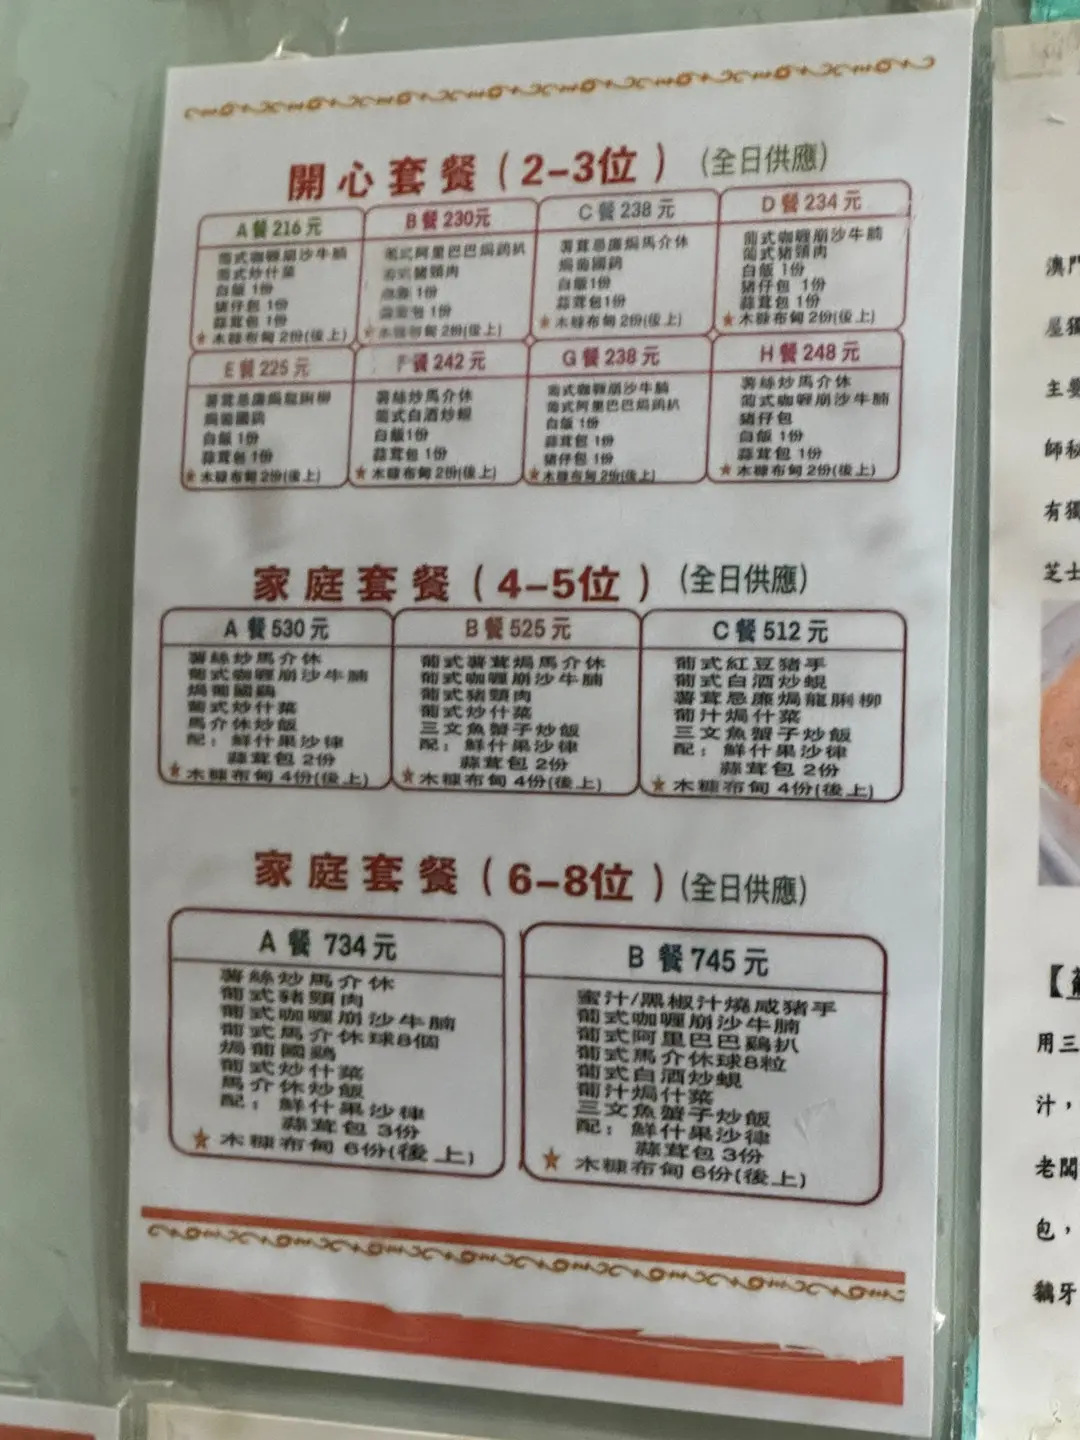 開心套餐(2-3位) (全日供應)
A餐216元
葡式咖喱崩沙牛腩
葡式炒什菜
白飯 1份
豬仔包 1份
蒜茸包 1份
★木糠布甸 2份(後上)
B餐230元
葡式阿里巴巴焗鷄扒
葡式豬頸肉
白飯 1份
蒜茸包 1份
★木糠布甸 2份(後上)
C餐238元
薯茸忌廉焗馬介休
焗葡國鷄
白飯1份
蒜茸包1份
★木糠布甸 2份(後上)
D餐234元
葡式咖喱崩沙牛腩
葡式豬頸肉
白飯 1份
豬仔包 1份
蒜茸包 1份
★木糠布甸 2份(後上)
E餐225元
薯茸忌廉焗龍脷柳
焗葡國鷄
白飯 1份
蒜茸包 1份
★木糠布甸 2份(後上)
F餐242元
薯絲炒馬介休
葡式白酒炒蜆
白飯1份
蒜茸包 1份
★木糠布甸 2份(後上)
G餐238元
葡式咖喱崩沙牛腩
葡式阿里巴巴焗鷄扒
白飯 1份
蒜茸包 1份
豬仔包 1份
★木糠布甸 2份(後上)
H餐248元
薯絲炒馬介休
葡式咖喱崩沙牛腩
豬仔包
白飯 1份
蒜茸包 1份
★木糠布甸 2份(後上)
家庭套餐(4-5位) (全日供應)
A餐530元
薯絲炒馬介休
葡式咖喱崩沙牛腩
焗葡國鷄
葡式炒什菜
馬介休炒飯
配：鮮什果沙律
蒜茸包 2份
★木糠布甸 4份(後上)
B餐525元
葡式薯茸焗馬介休
葡式咖喱崩沙牛腩
葡式豬頸肉
葡式炒什菜
三文魚蟹子炒飯
配：鮮什果沙律
蒜茸包 2份
★木糠布甸 4份(後上)
C餐512元
葡式紅豆豬手
葡式白酒炒蜆
薯茸忌廉焗龍脷柳
葡汁焗什菜
三文魚蟹子炒飯
配：鮮什果沙律
蒜茸包 2份
★木糠布甸 4份(後上)
家庭套餐(6-8位) (全日供應)
A餐 734元
薯絲炒馬介休
葡式豬頸肉
葡式咖喱崩沙牛腩
葡式馬介休球8個
焗葡國鷄
葡式炒什菜
馬介休炒飯
配：鮮什果沙律
蒜茸包 3份
★木糠布甸 6份(後上)
B餐745元
蜜汁/黑椒汁燒咸豬手
葡式咖喱崩沙牛腩
葡式阿里巴巴鷄扒
葡式馬介休球8粒
葡式白酒炒蜆
葡汁焗什菜
三文魚蟹子炒飯
配：鮮什果沙律
蒜茸包 3份
★木糠布甸 6份(後上)
澳門
屋獨
主要
師秘
有獨
芝士
【葡
用三
汁，
老闆
包，
鵝牙